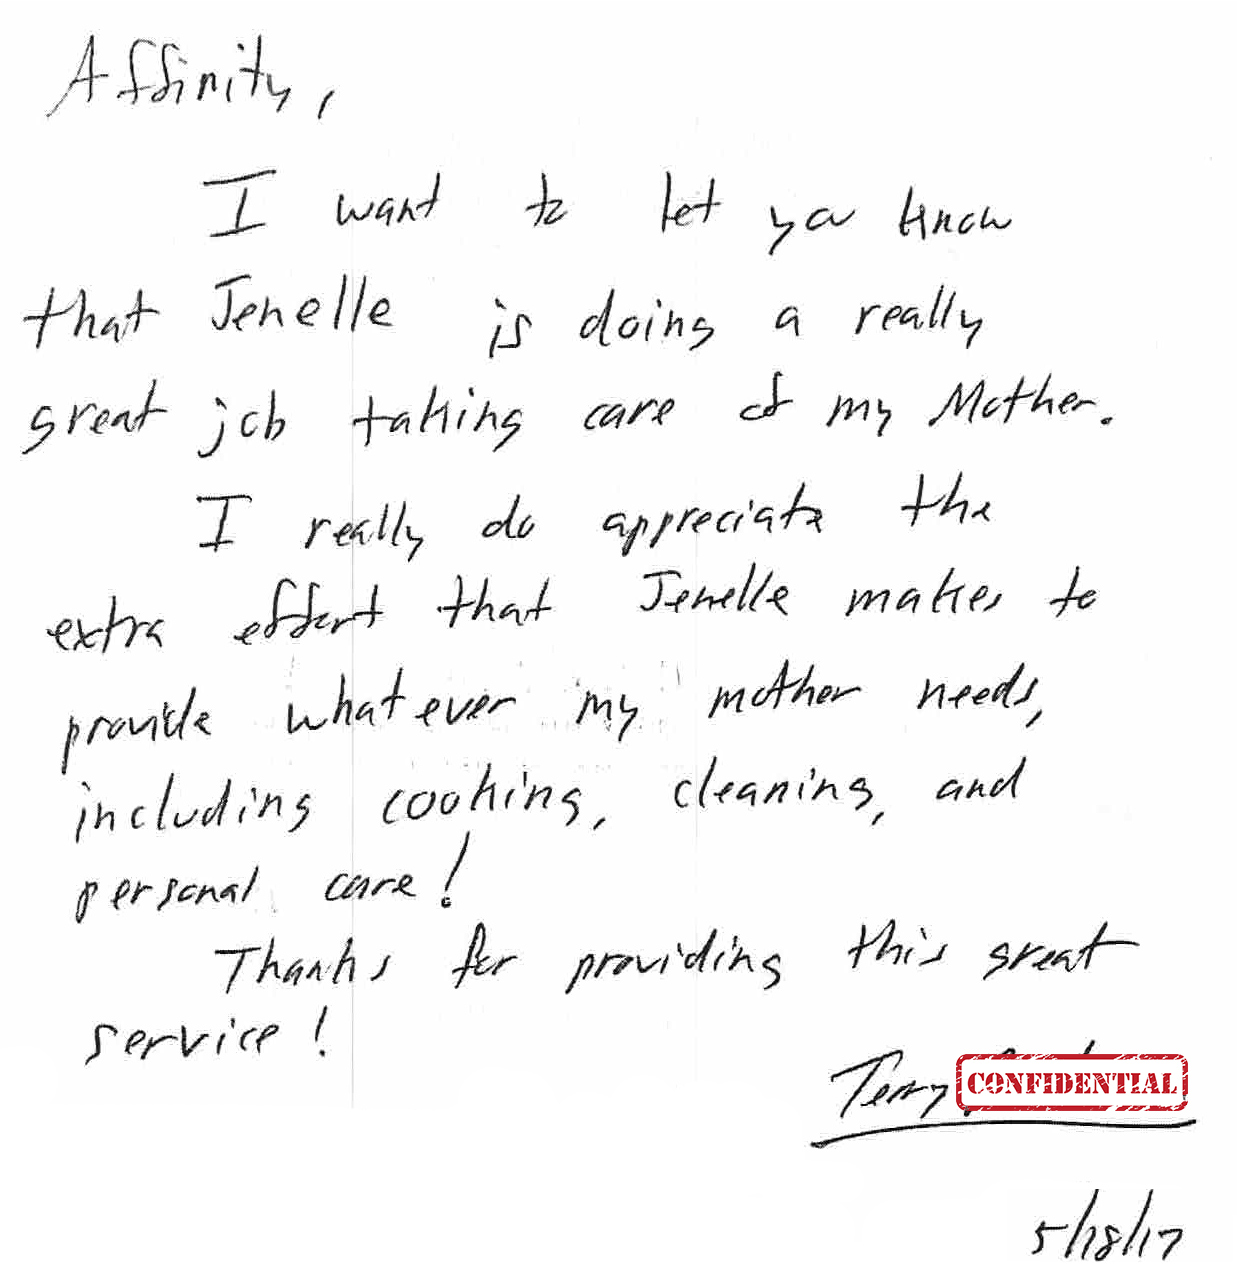 Affinity,
I want to let you know
that Jenelle is doing a really
great job taking care of my Mother.
I really do appreciate the
extra effort that Jenelle makes to
provide whatever my mother needs,
including cooking, cleaning, and
personal care!
Thanks for providing this great
service!
Terry
CONFIDENTIAL
5/18/17